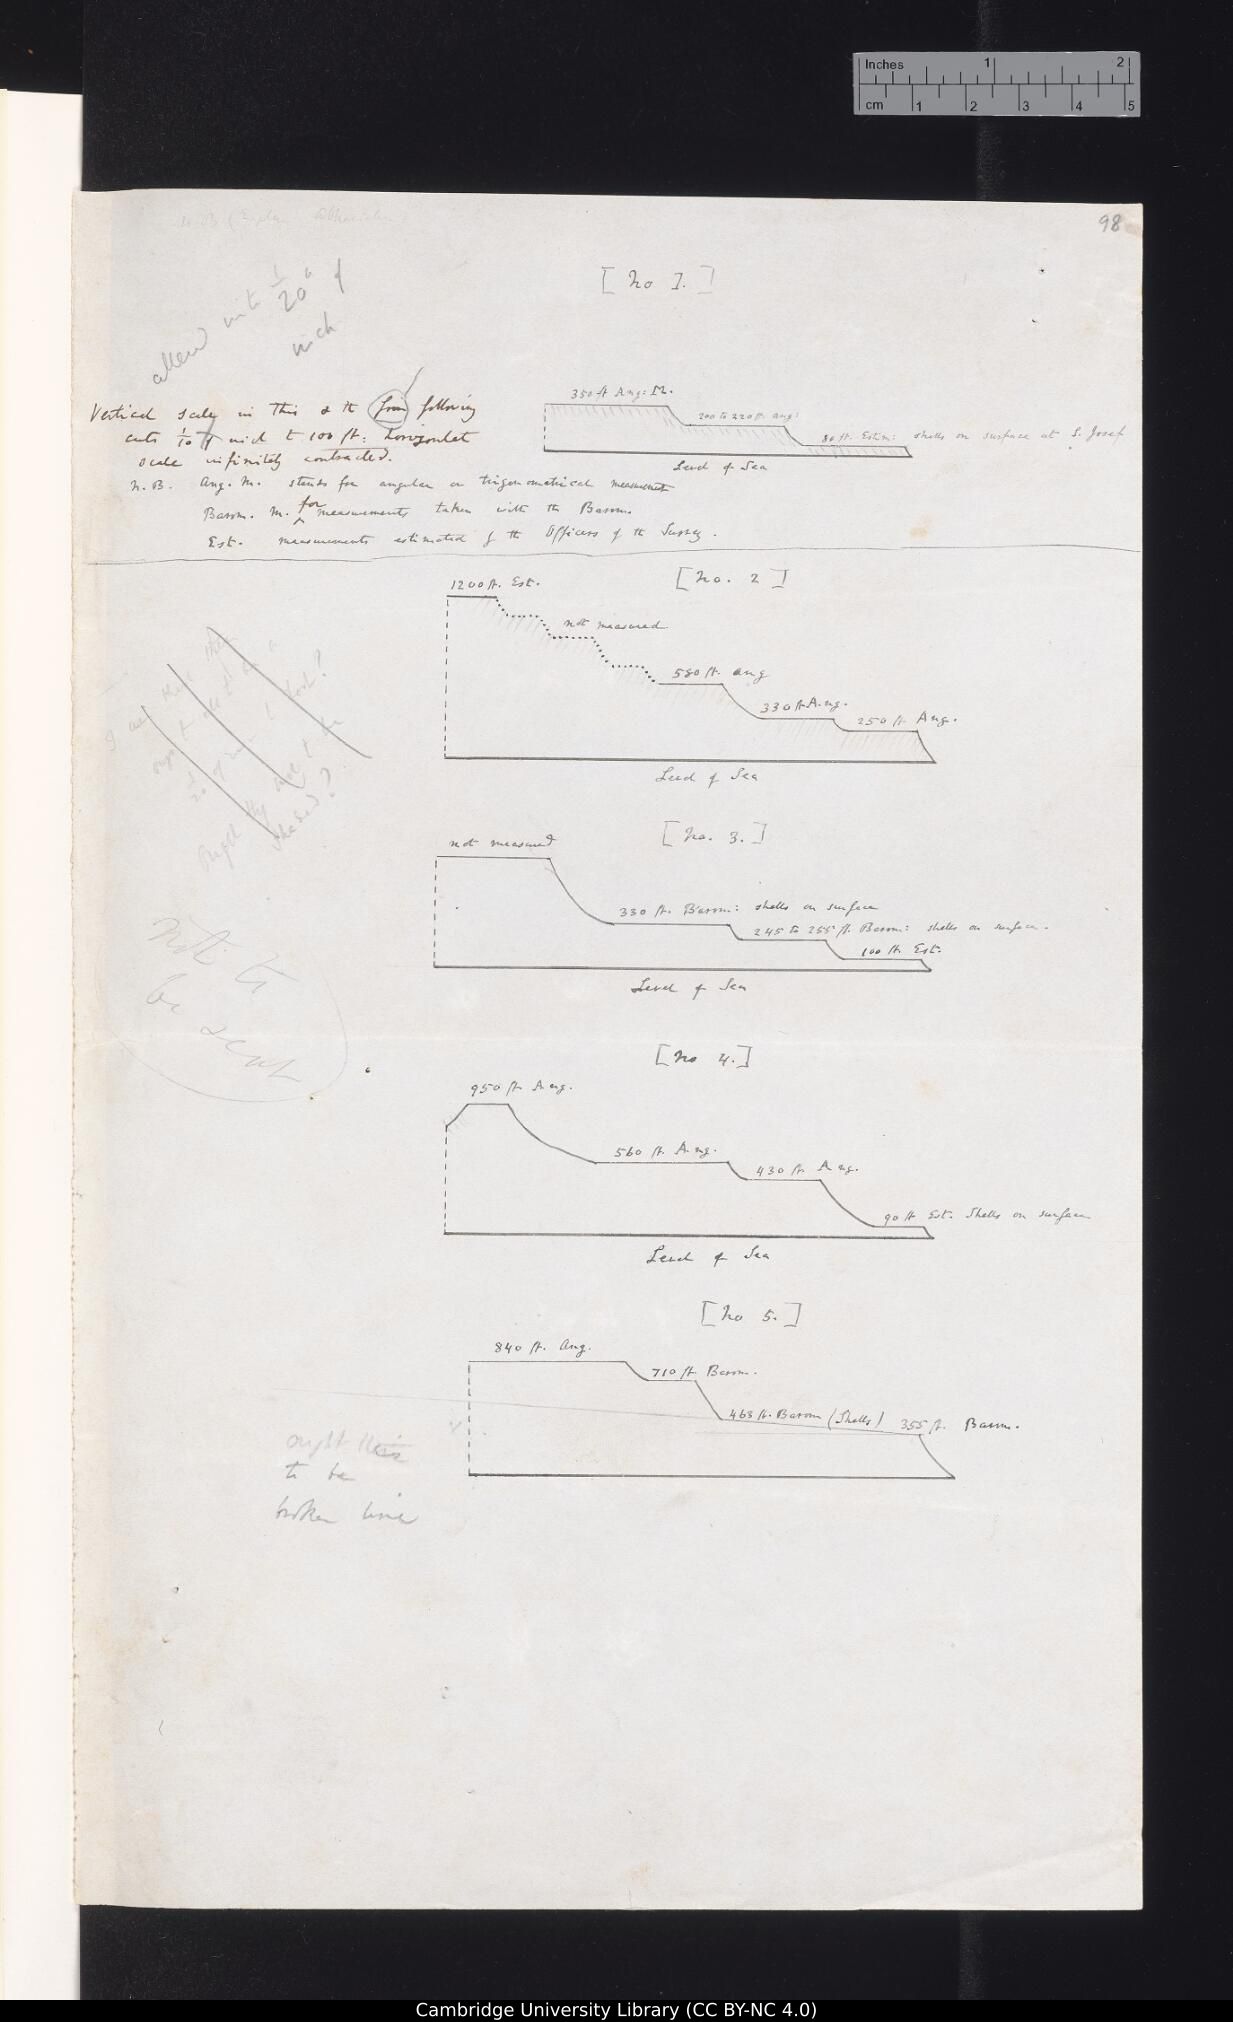 Inches 1 2
cm 1 2 3 4 5
98
N.B (Explain
[No 1.]
altered into 1/20th of
inch
350 ft Ang: M.
200 to 220 ft. ang:
80 ft. Estim: shells on surface at S. Josef
Level of Sea
Vertical scale in this & the four following
cuts 1/20 of inch to 100 ft: horizontal
scale infinitely contracted.
N.B. Ang. M. stands for angular or trigonometrical measurement
Barom. M. for measurements taken with the Barom.
Est. measurements estimated by the Officers of the Survey.
[No. 2]
1200 ft. Est.
not measured
580 ft. ang
330 ft Ang.
250 ft Ang.
Level of Sea
ought they not to be
shaded?
[No. 3.]
not measured
330 ft. Barom: shells on surface
245 to 255 ft. Barom: shells on surface.
100 ft Est.
Level of Sea
Not to
be sent
[No 4.]
950 ft Ang.
560 ft. Ang.
430 ft Ang.
90 ft Est. Shells on surface
Level of Sea
[No 5.]
840 ft. Ang.
710 ft Barom.
463 ft. Barom (Shells) 355 ft. Barom.
ought this
to be
broken line
Cambridge University Library (CC BY-NC 4.0)